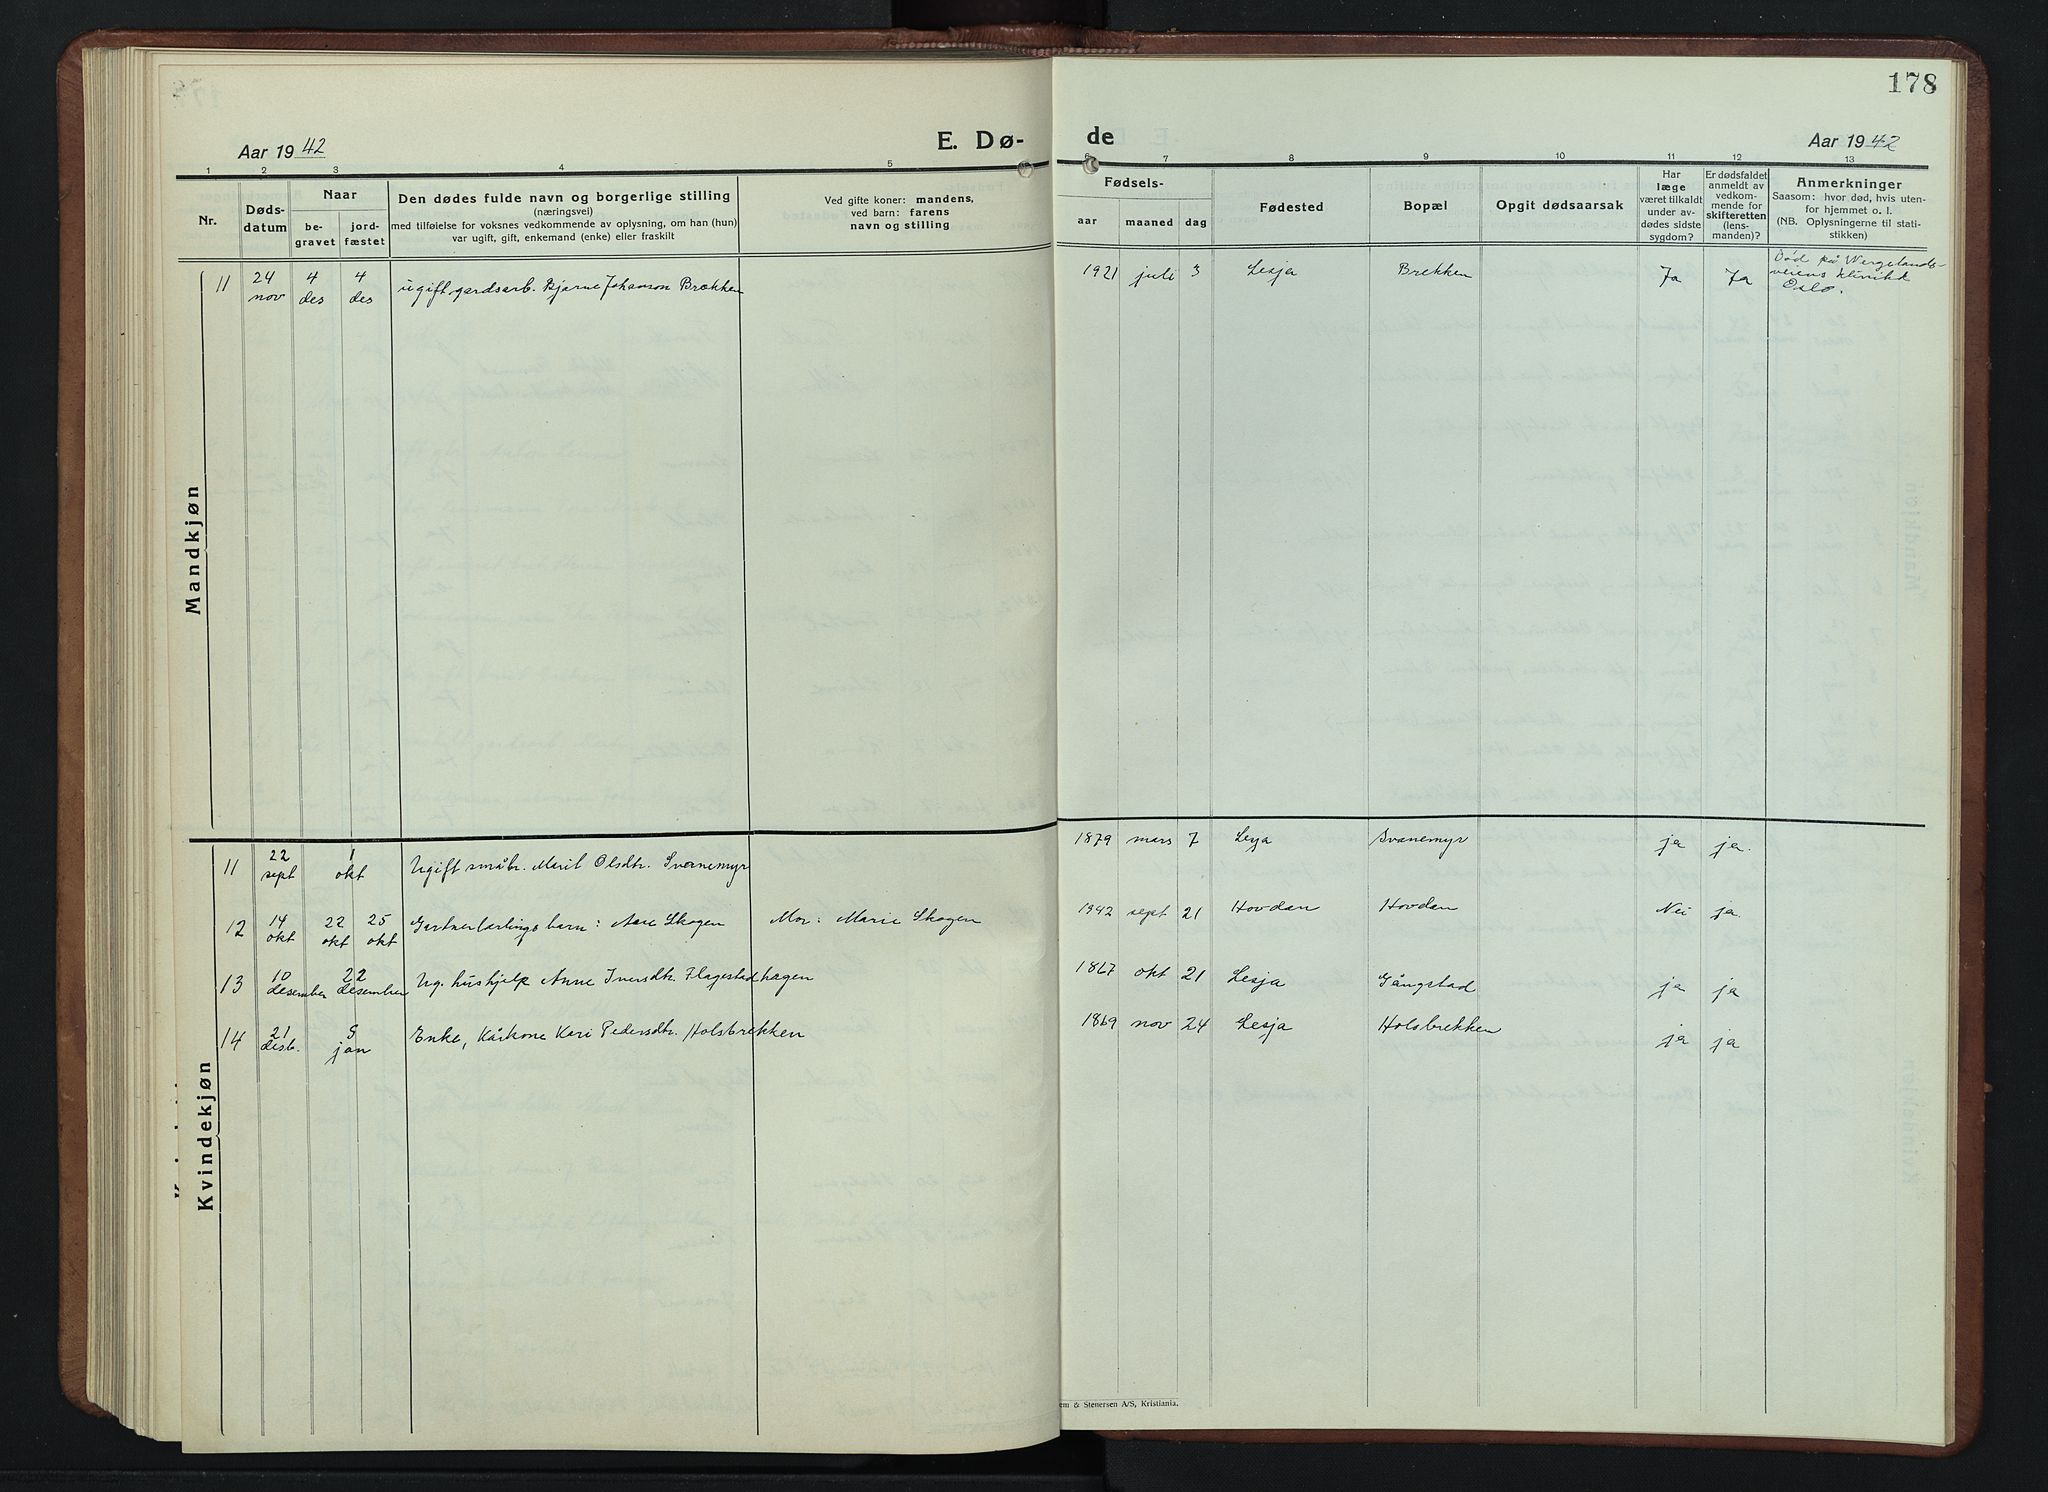 178
Aar 1942
E. Dø-
de
Aar 1942
1 2 3 4 5 6 7 8 9 10 11 12 13
Nr.
Døds-
datum
Naar
be-
gravet
jord-
fæstet
Den dødes fulde navn og borgerlige stilling
(næringsvei)
med tilføielse for voksnes vedkommende av oplysning, om han (hun)
var ugift, gift, enkemand (enke) eller fraskilt
Ved gifte koner: mandens,
ved barn: farens
navn og stilling
Fødsels-
aar maaned dag
Fødested
Bopæl
Opgit dødsaarsak
Har
læge
været tilkaldt
under av-
dødes sidste
sygdom?
Er dødsfaldet
anmeldt av
vedkom-
mende for
skifteretten
(lens-
manden)?
Anmerkninger
Saasom: hvor død, hvis uten-
for hjemmet o. l.
(NB. Oplysningerne til stati-
stikken)
Mandkjøn
11 24 nov 4 des 4 des ugift gardsarb. Bjarne Johanson Brækken 1921 juli 3 Lesja Brekken Ja Ja Død på Wergelands-
veiens klinikk
Oslo.
Kvindekjøn
11 22 sept 1 okt Ugift småbr. Marit Olsdtr. Svanemyr 1879 mars 7 Lesja Svanemyr ja ja.
12 14 okt 22 okt 25 okt Gartnerlærlings barn: Aase Skogen Mor: Marie Skogen 1942 sept 21 Hovdan Hovdan Nei ja.
13 10 desember 22 desember Ug. hushjelp Anne Iversdtr. Flagestadhagen 1867 okt 21 Lesja Gångstad ja ja
14 21 desb. 5 jan Enke, Kårkone Kari Pedersdtr. Holsbrekken 1869 nov 24 Lesja Holsbrekken ja ja
em & Stenersen A/S, Kristiania.